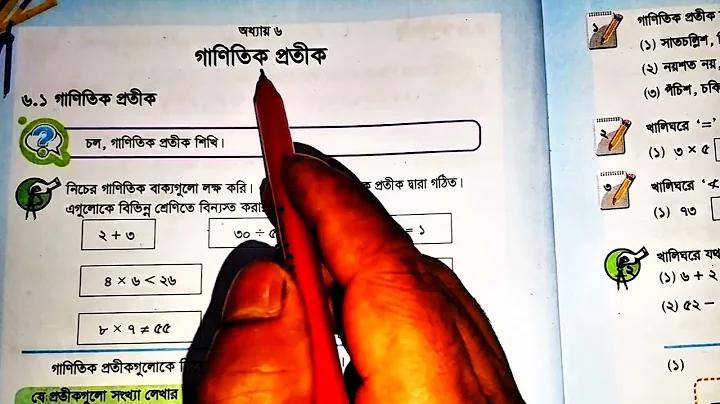 অধ্যায় ৬
গাণিতিক প্রতীক
৬.১ গাণিতিক প্রতীক
চল, গাণিতিক প্রতীক শিখি।
নিচের গাণিতিক বাক্যগুলো লক্ষ করি। প্রতীক দ্বারা গঠিত।
এগুলোকে বিভিন্ন শ্রেণিতে বিন্যস্ত
২ + ৩
৩০ ÷
= ১
৪ × ৬ < ২৬
৮ × ৭ ≠ ৫৫
গাণিতিক প্রতীকগুলোকে
যে প্রতীকগুলো সংখ্যা লেখার
১
গাণিতিক প্রতীক
(১) সাতচল্লিশ,
(২) নয়শত নয়,
(৩) পঁচিশ,
২
খালিঘরে '='
(১) ৩ × ৫
৩
খালিঘরে
(১) ৭৩
খালিঘরে
(১) ৬ + ২
(২) ৫২ −
(১)